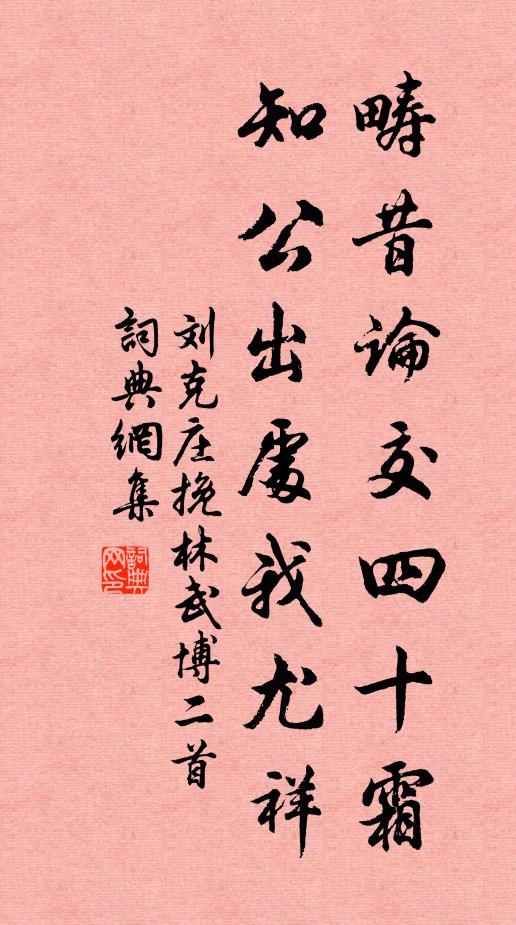 疇昔論交四十霜
知公出處我尤祥
刘克庄挽林武博二首
詞典網集
詞典網印